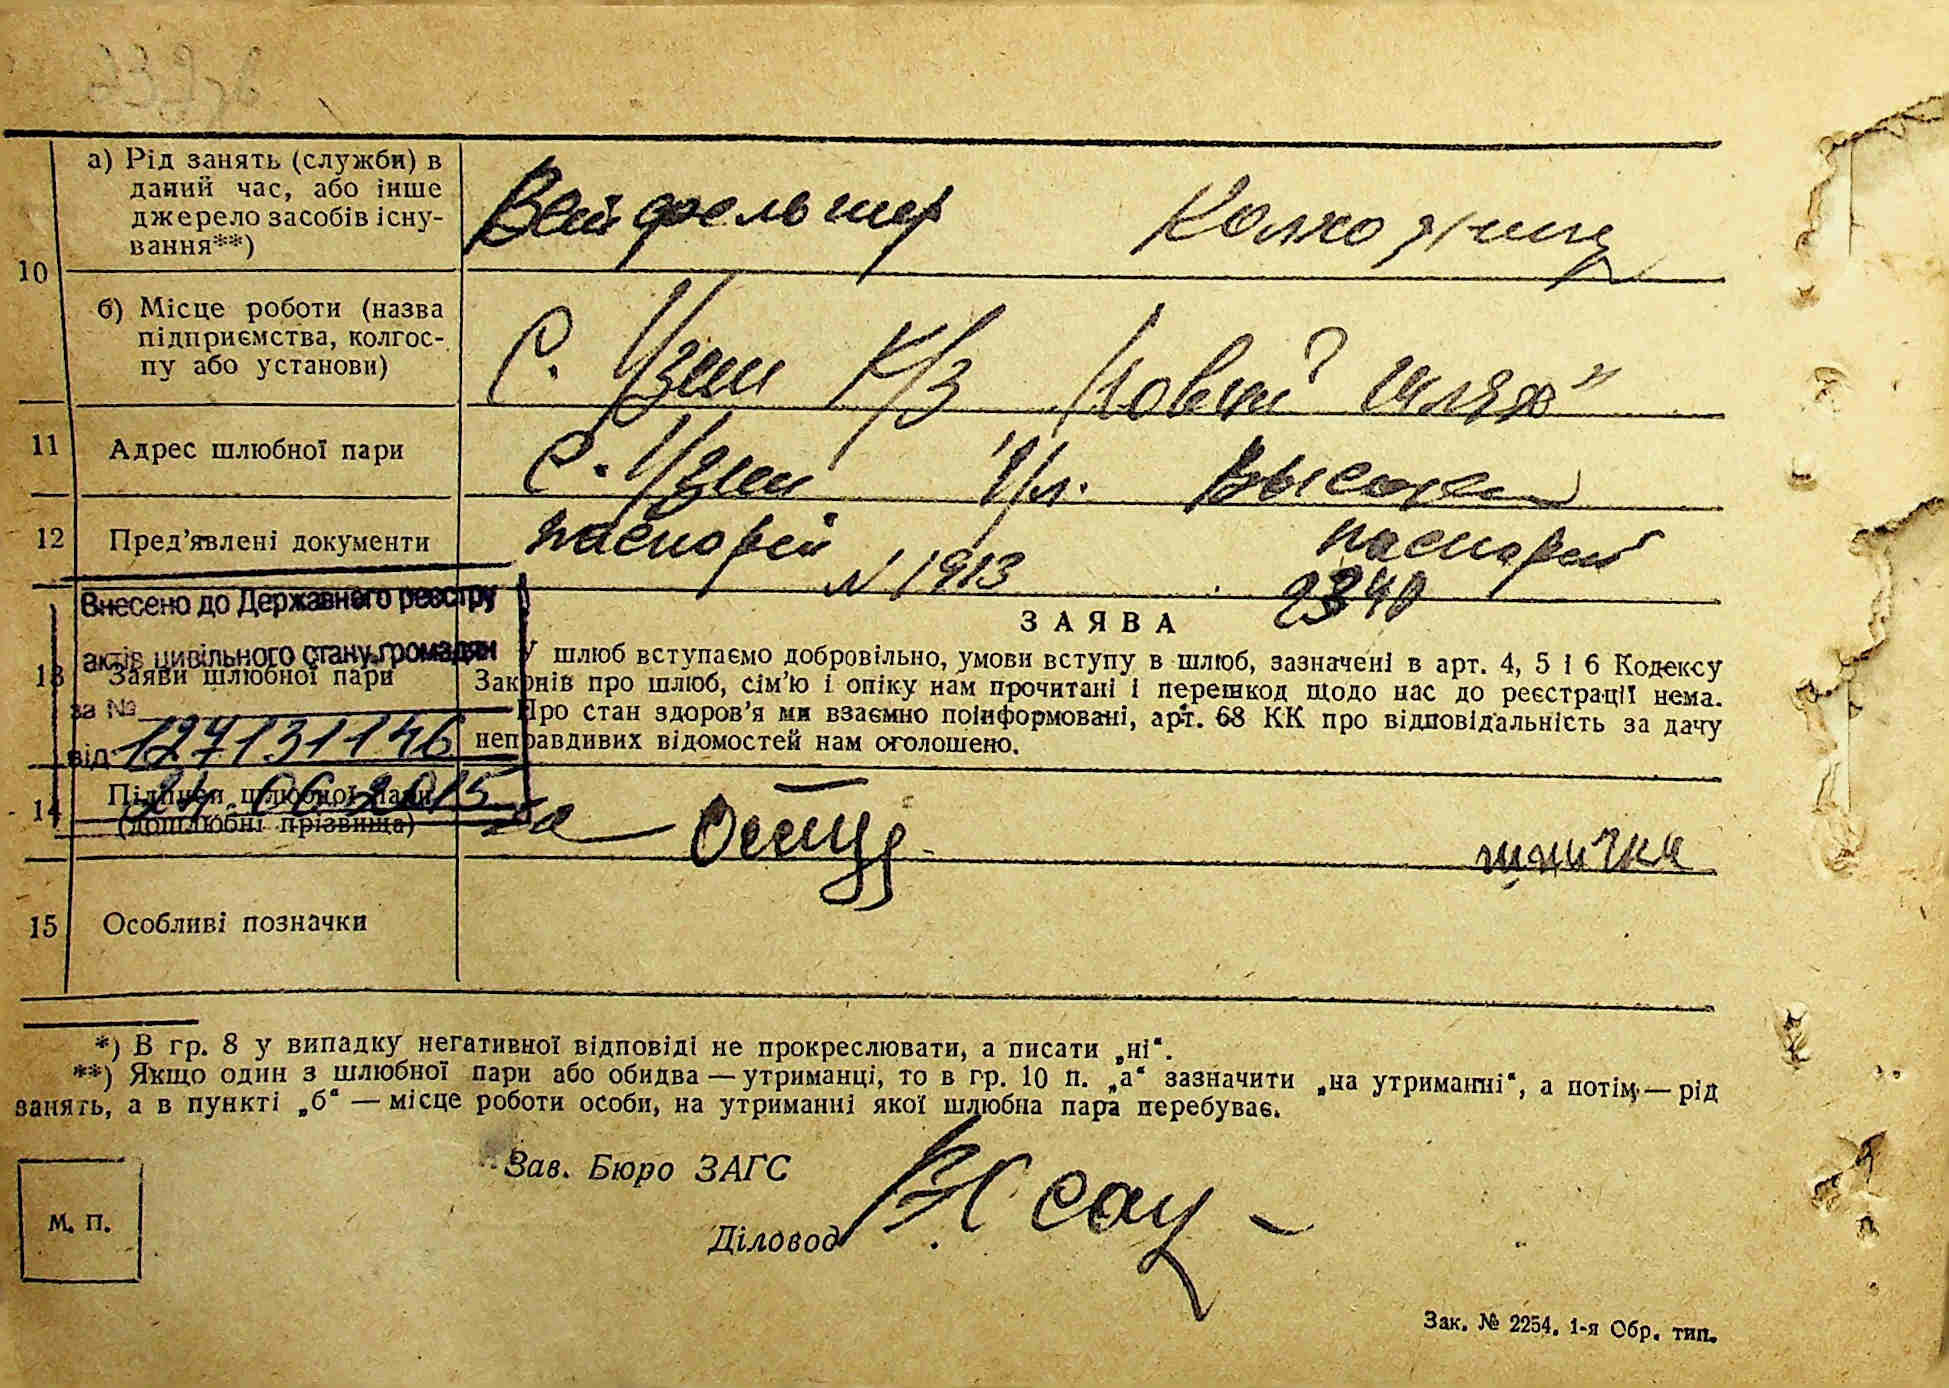 10
а) Рід занять (служби) в
даний час, або інше
джерело засобів існу-
вання**)
Ветфельшер Колхозниця
б) Місце роботи (назва
підприємства, колгос-
пу або установи)
С. Узин К/з „Новий шлях"
11 Адрес шлюбної пари
С. Узин Ул.
12 Пред'явлені документи
паспорт N 1913 паспорт 2340
Внесено до Державного реєстру
актів цивільного стану громадян
за №
127131146
від
24.06.2015
13 Заяви шлюбної пари
ЗАЯВА
У шлюб вступаємо добровільно, умови вступу в шлюб, зазначені в арт. 4, 5 і 6 Кодексу
Законів про шлюб, сім'ю і опіку нам прочитані і перешкод щодо нас до реєстрації нема.
Про стан здоров'я ми взаємно поінформовані, арт. 68 КК про відповідальність за дачу
неправдивих відомостей нам оголошено.
14 Підписи шлюбної пари
(дошлюбні прізвища)
15 Особливі позначки
*) В гр. 8 у випадку негативної відповіді не прокреслювати, а писати „ні“.
**) Якщо один з шлюбної пари або обидва — утриманці, то в гр. 10 п. „а“ зазначити „на утриманні“, а потім — рід
занять, а в пункті „б“ — місце роботи особи, на утриманні якої шлюбна пара перебуває.
Зав. Бюро ЗАГС
Діловод
М. П.
Зак. № 2254. 1-я Обр. тип.